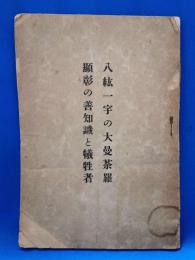 八紘一宇の大曼荼羅
顯彰の善知識と犠牲者